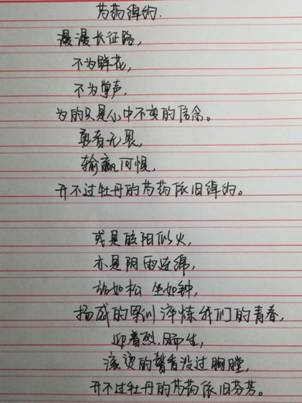 芍药绰约.
漫漫长征路,
不为鲜花,
不为掌声.
为的只是心中不变的信念。
青春无畏,
输赢何惧,
开不过牡丹的芍药依旧绰约。
或是骄阳似火,
亦是阴雨连绵,
站如松 坐如钟,
扬威的军训淬炼我们的青春,
迎着烈日而生,
滚烫的馨香没过胸膛,
开不过牡丹的芍药依旧芬芳。